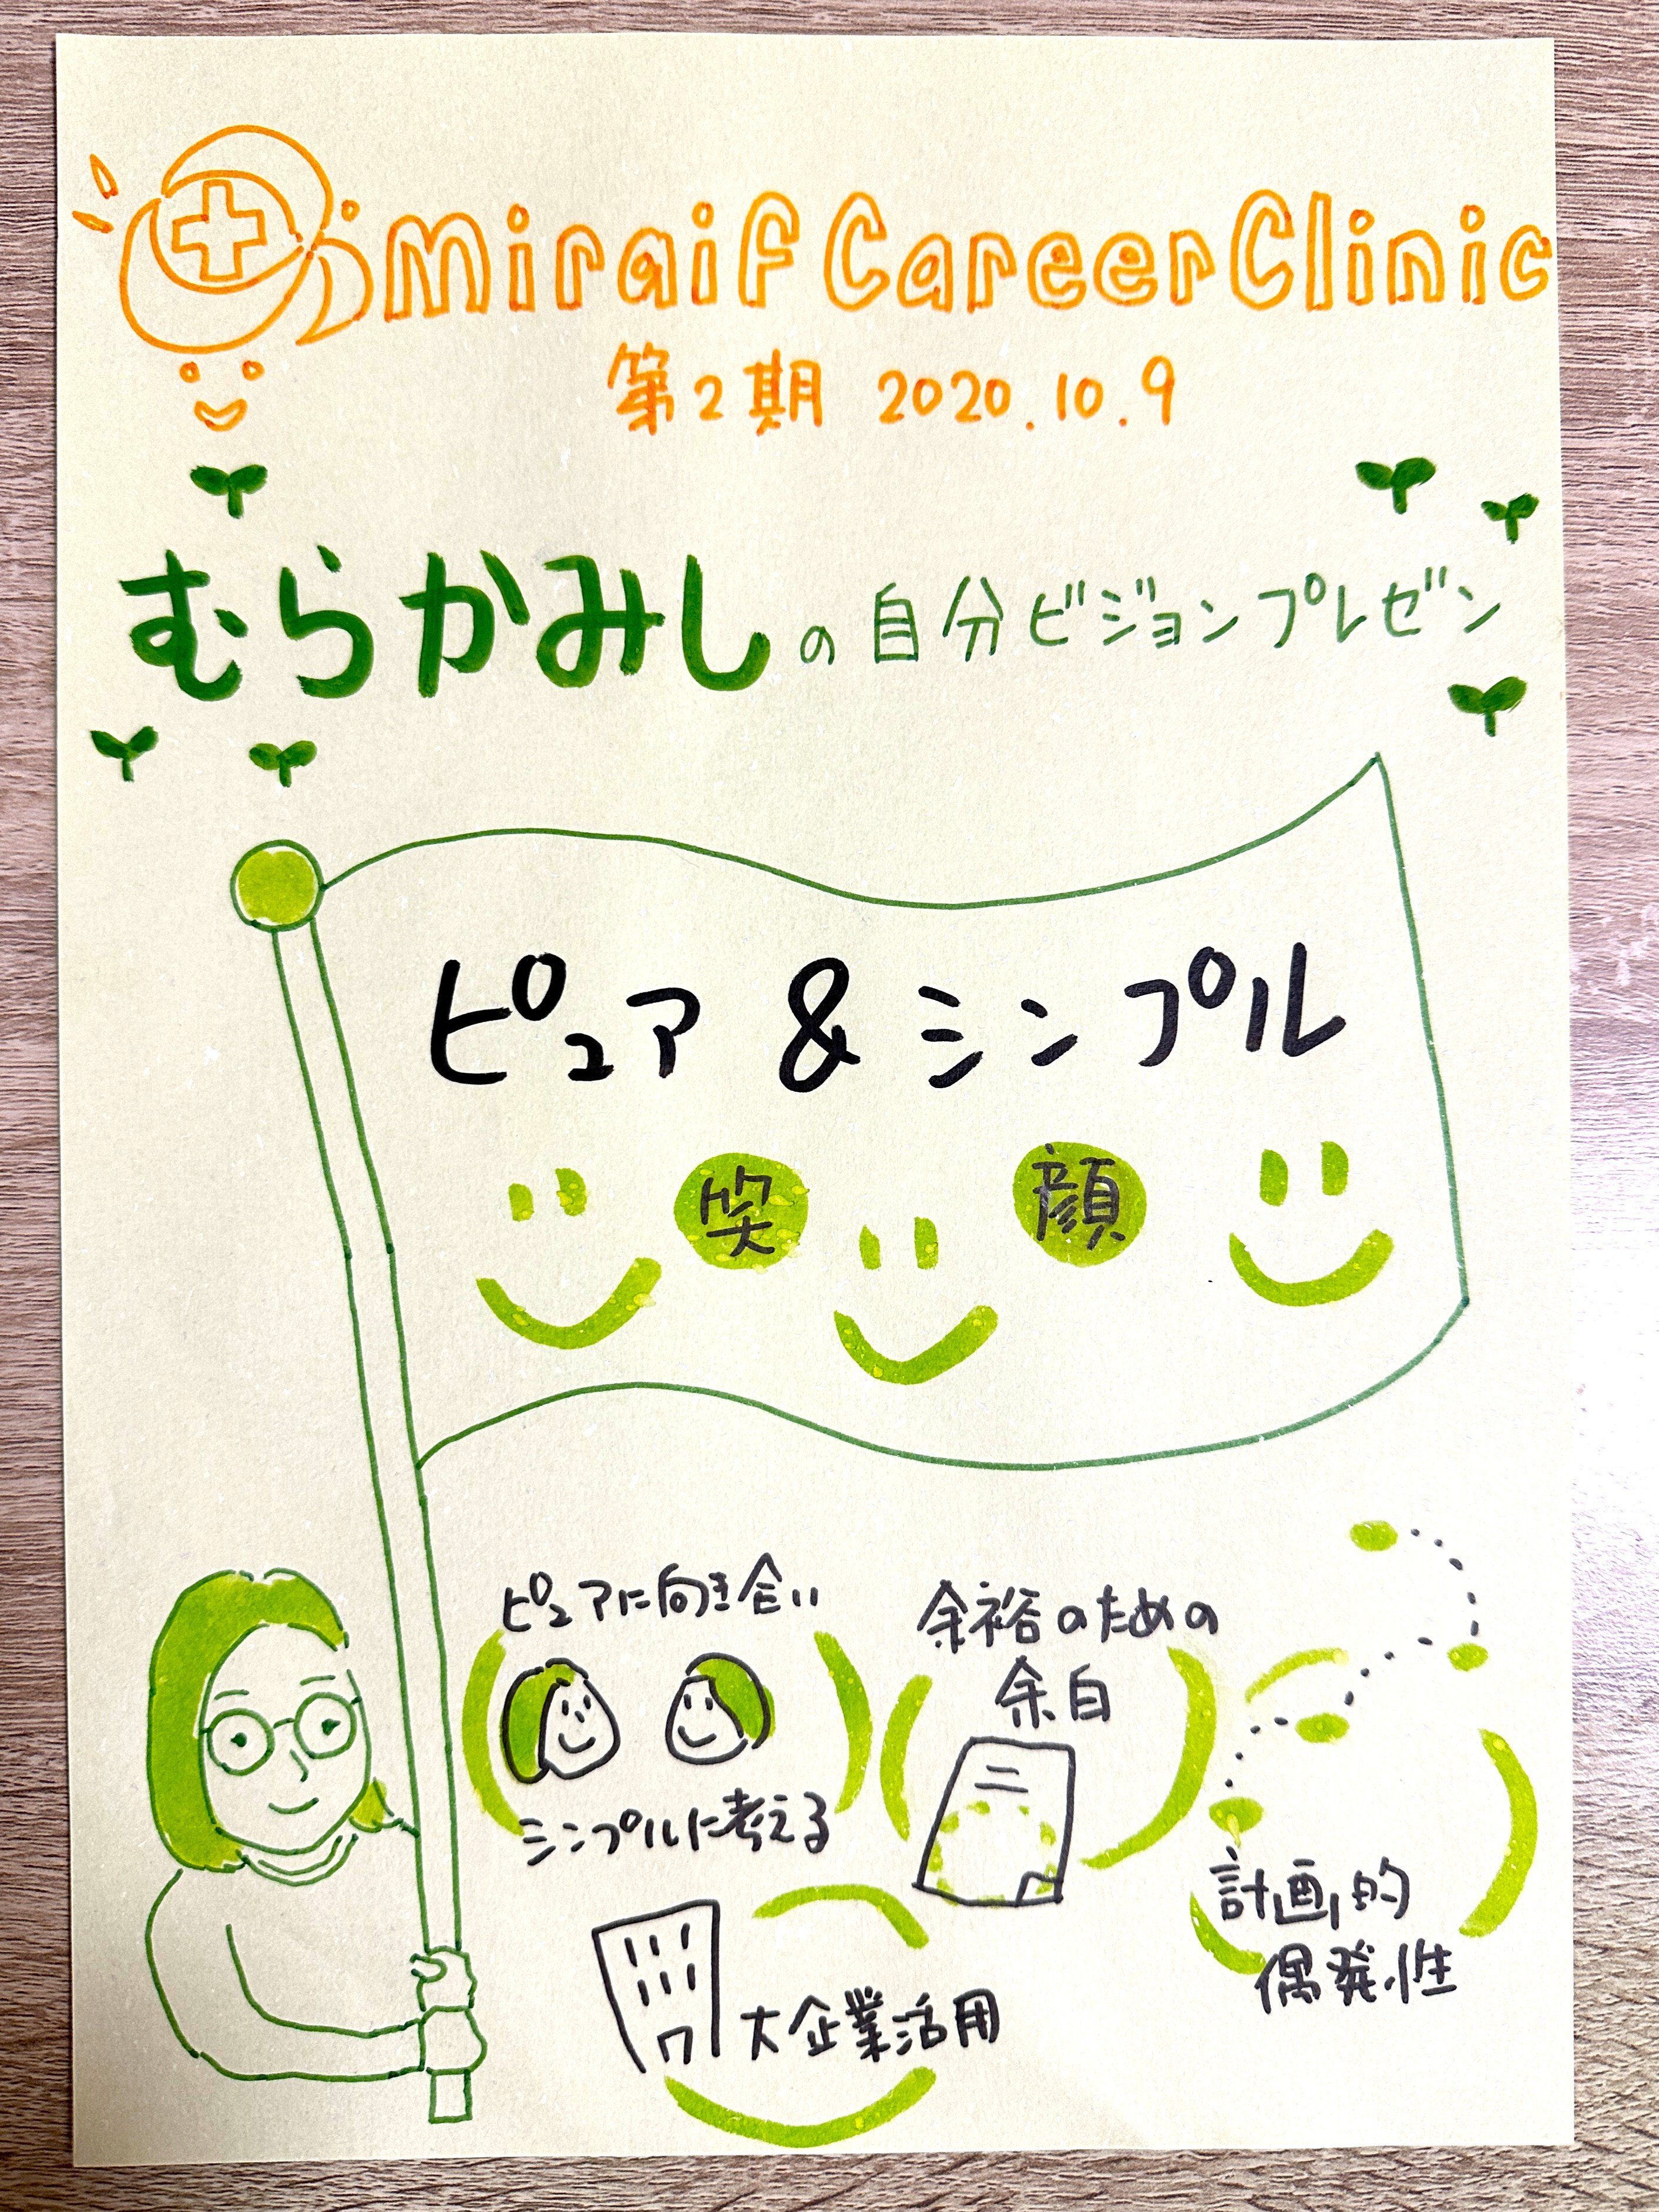 miraif Career Clinic
第2期 2020.10.9
むらかみしの自分ビジョンプレゼン
ピュア & シンプル
笑 顔
ピュアに向き合い
シンプルに考える
余裕のための
余白
計画的
偶発性
大企業活用